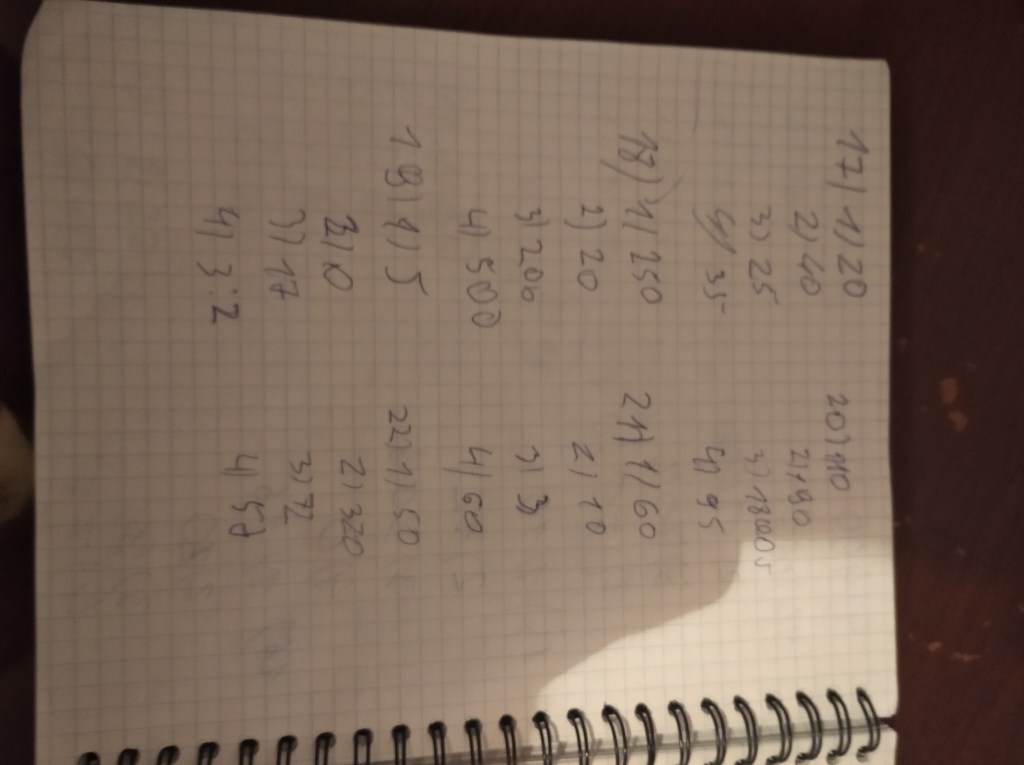 17) 1) 20
2) 40
3) 25
4) 35
18) 1) 250
2) 20
3) 200
4) 500
19) 1) 5
2) 0
3) 17
4) 3:2
20) 1) 10
2) 90
4) 95
21) 1) 60
2) 10
3) 3
4) 60
22) 1) 50
2) 320
3) 72
4) 59